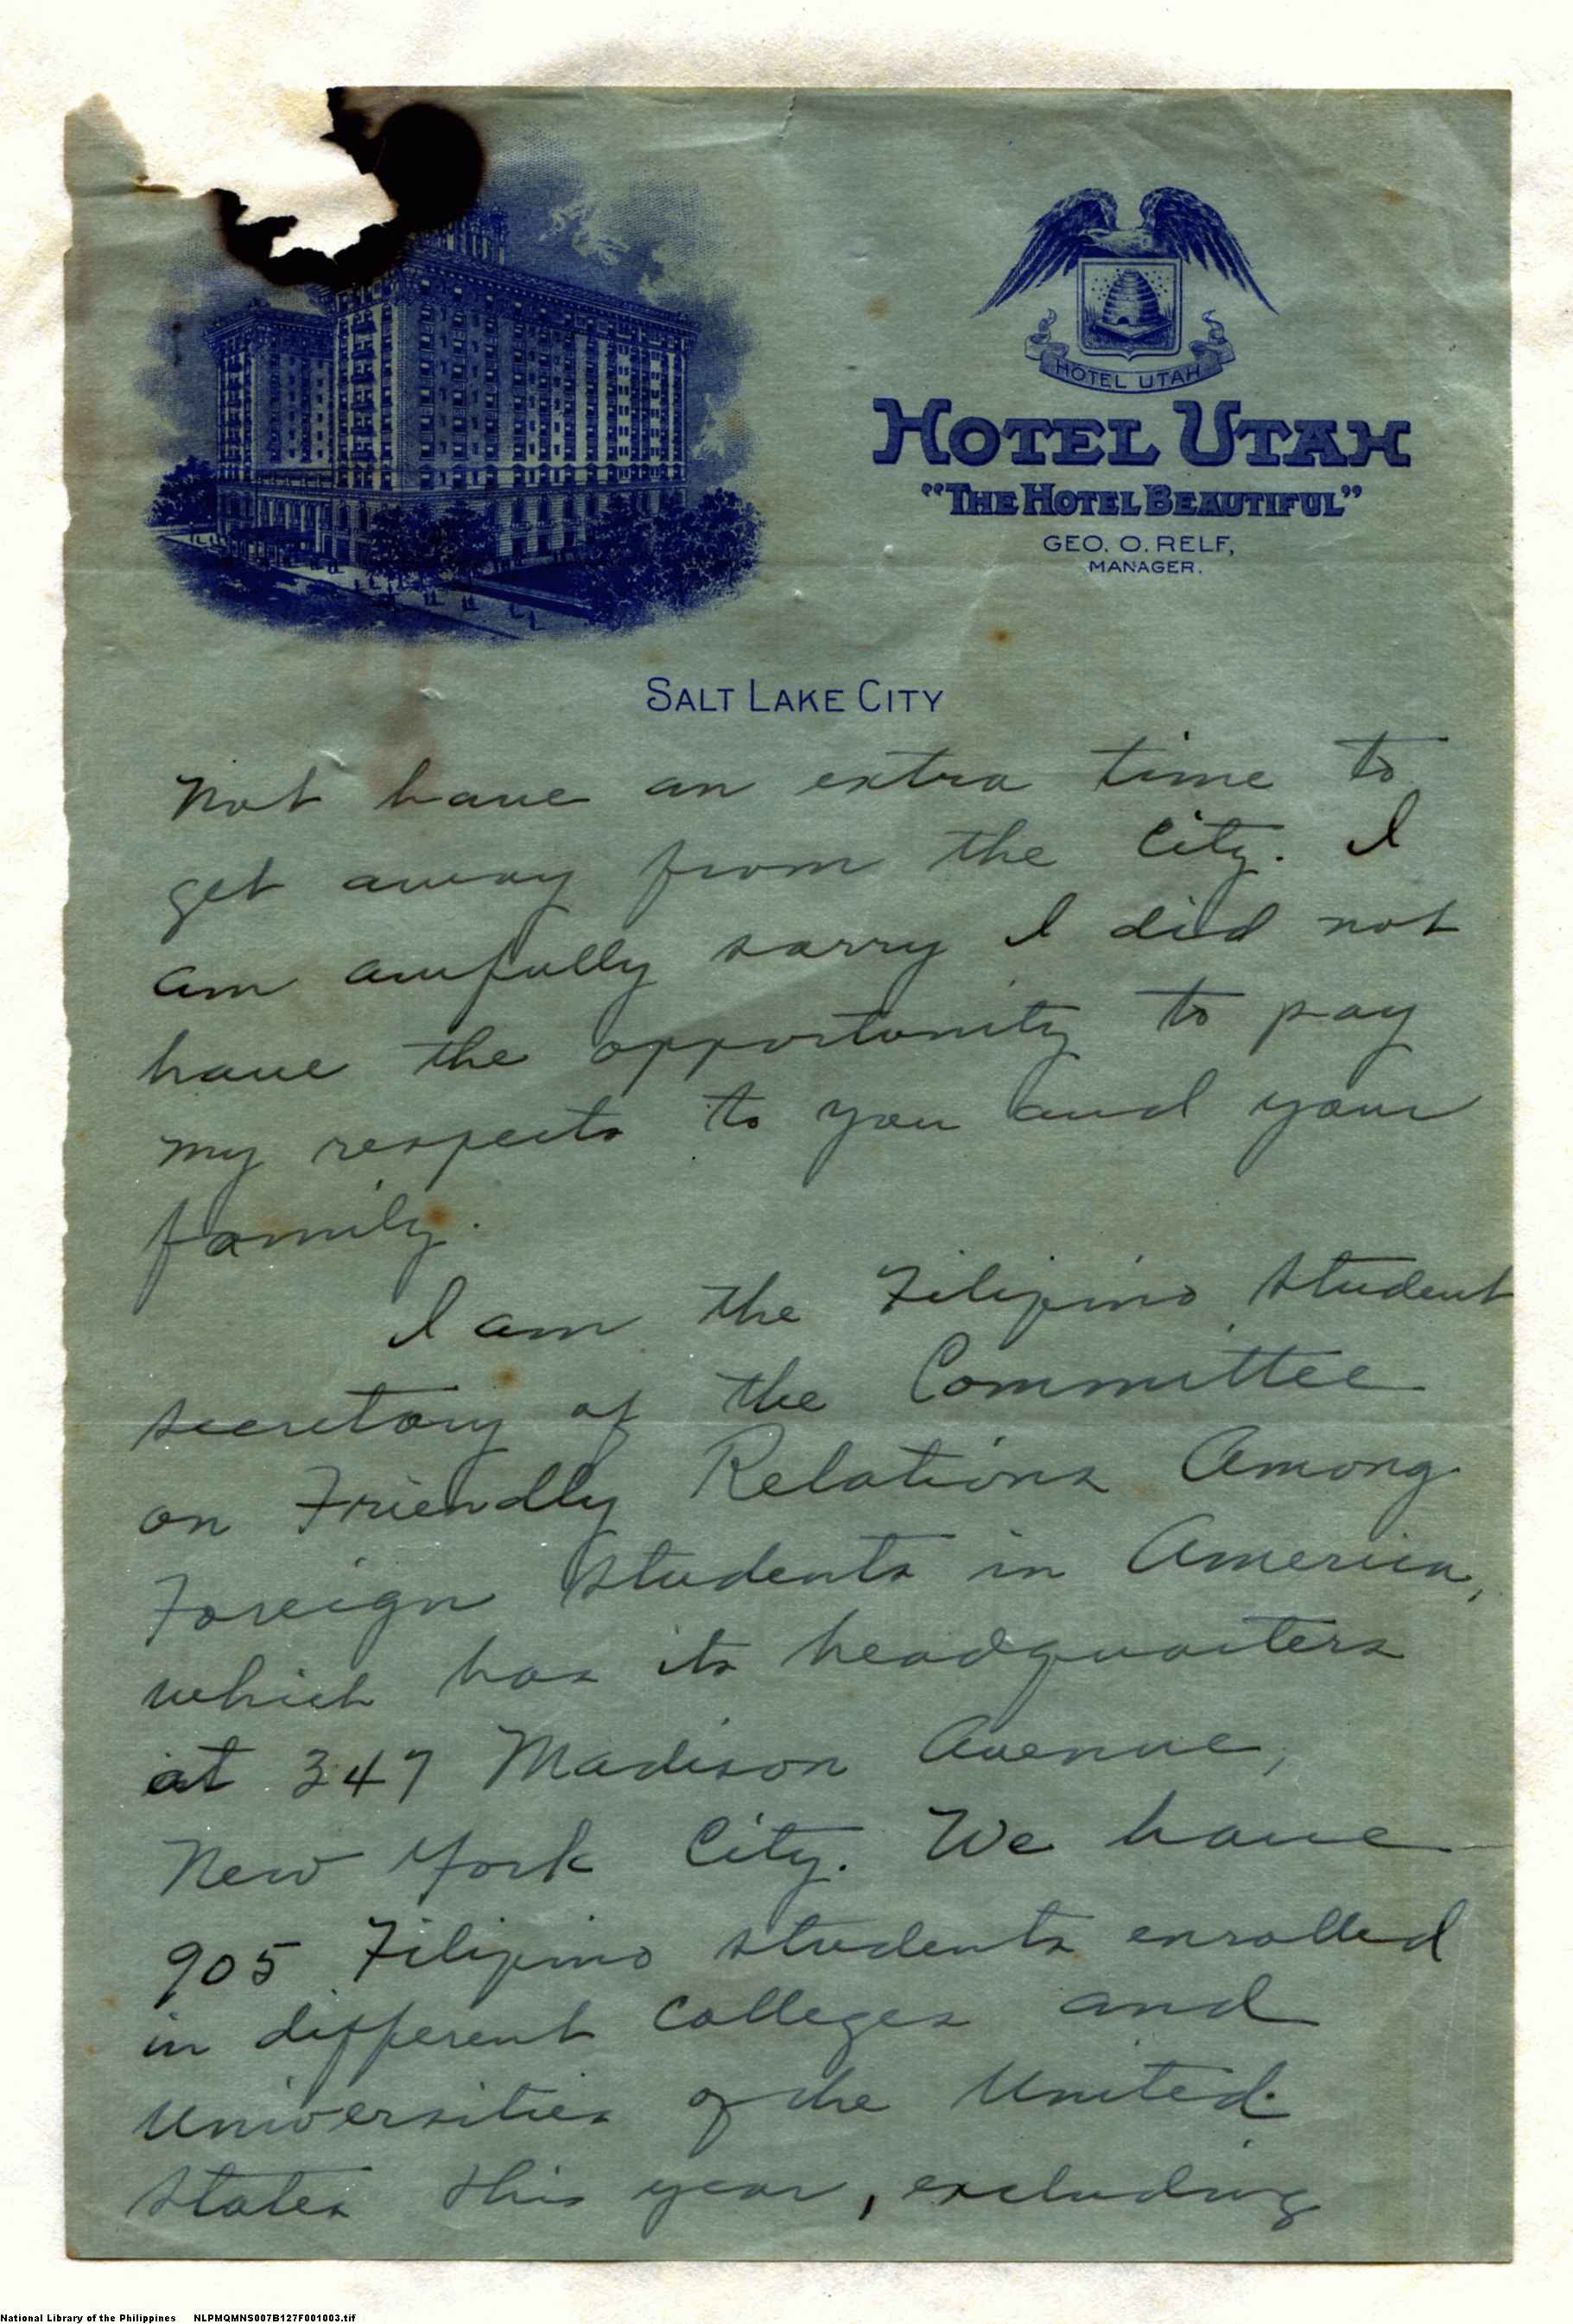 HOTEL UTAH
HOTEL UTAH
"THE HOTEL BEAUTIFUL"
GEO. O. RELF,
MANAGER.
SALT LAKE CITY
not have an extra time to
get away from the City. I
am awfully sorry I did not
have the opportunity to pay
my respects to you and your
family.
I am the Filipino Student
secretary of the Committee
on Friendly Relations Among
Foreign Students in America,
which has its headquarters
at 347 Madison Avenue,
New York City. We have
905 Filipino students enrolled
in different Colleges and
Universities of the United
States this year, excluding
National Library of the Philippines NLPMQMNS007B127F001003.tif